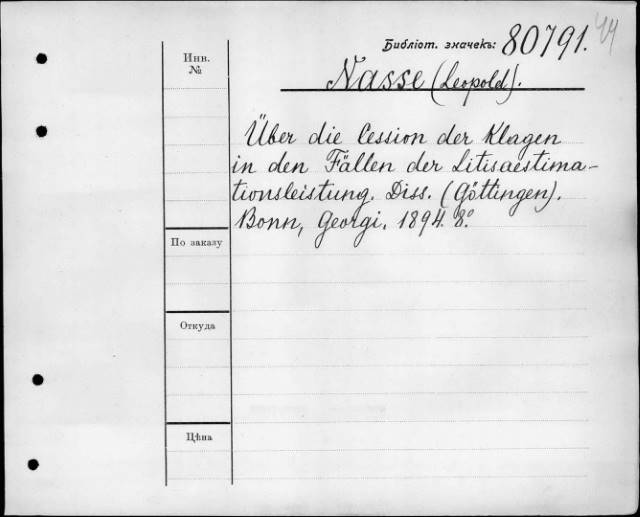 Библіот. значекъ: 80791.
44
Инв.
№
Nasse (Leopold).
Über die Cession der Klagen
in den Fällen der Litisaestima-
tionsleistung. Diss. (Göttingen).
Bonn, Georgi. 1894. 8.°
По заказу
Откуда
Цѣна